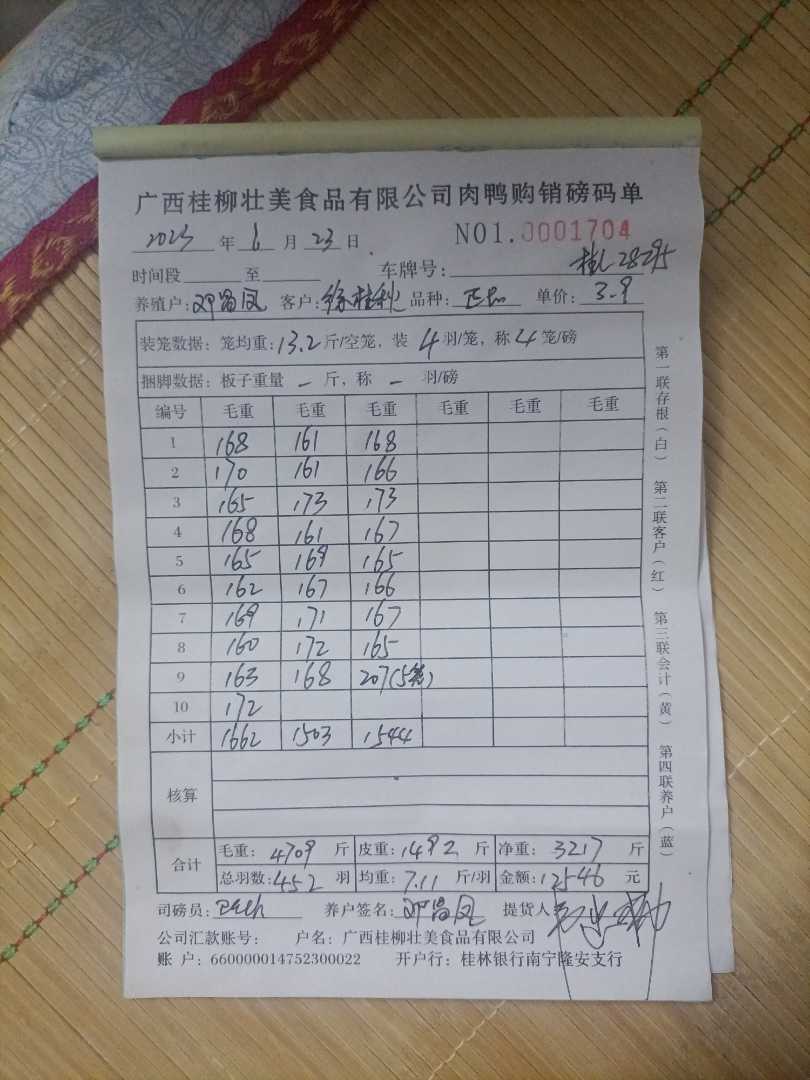 广西桂柳壮美食品有限公司肉鸭购销磅码单
2023年6月23日 NO1.0001704
时间段 至 车牌号: 桂L28295
养殖户: 邓昌凤 客户: 徐桂秋 品种: 单价: 3.9
装笼数据: 笼均重: 13.2斤/空笼, 装4羽/笼, 称4笼/磅
捆脚数据: 板子重量 - 斤, 称 - 羽/磅
编号 毛重 毛重 毛重 毛重 毛重 毛重
1 168 161 168
2 170 161 166
3 165 173 173
4 168 161 167
5 165 169 165
6 162 167 166
7 169 171 167
8 160 172 165
9 163 168 207(5笼)
10 172
小计 1662 1503 1544
核算
合计 毛重: 4709斤 皮重: 1492斤 净重: 3217斤
总羽数: 452羽 均重: 7.11斤/羽 金额: 12546元
司磅员: 养户签名: 邓昌凤 提货人
公司汇款账号: 户名: 广西桂柳壮美食品有限公司
账 户: 660000014752300022 开户行: 桂林银行南宁隆安支行
第一联存根(白) 第二联客户(红) 第三联会计(黄) 第四联养户(蓝)